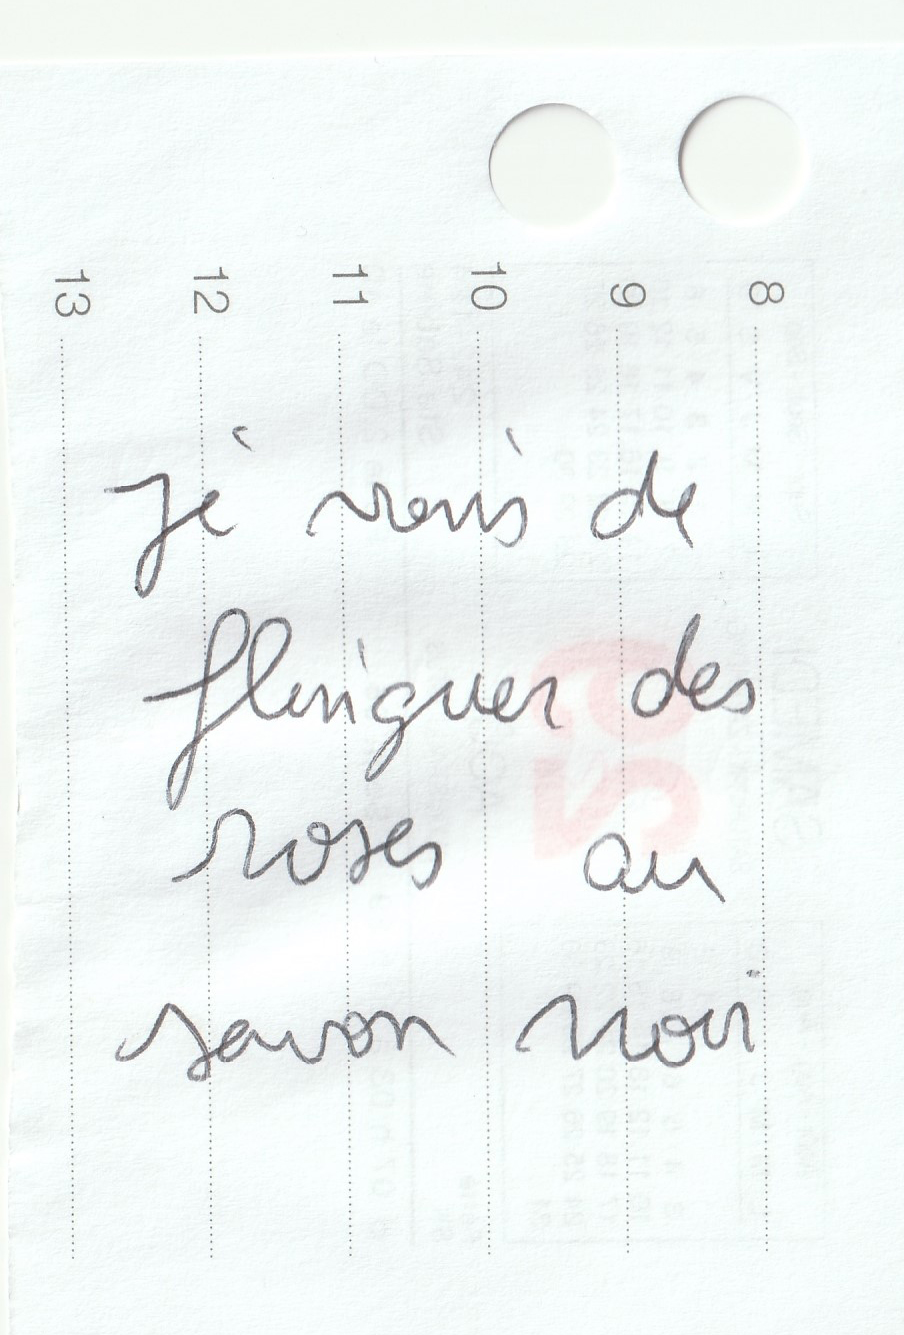 je viens de
flinguer des
roses au
savon noir
8
9
10
11
12
13